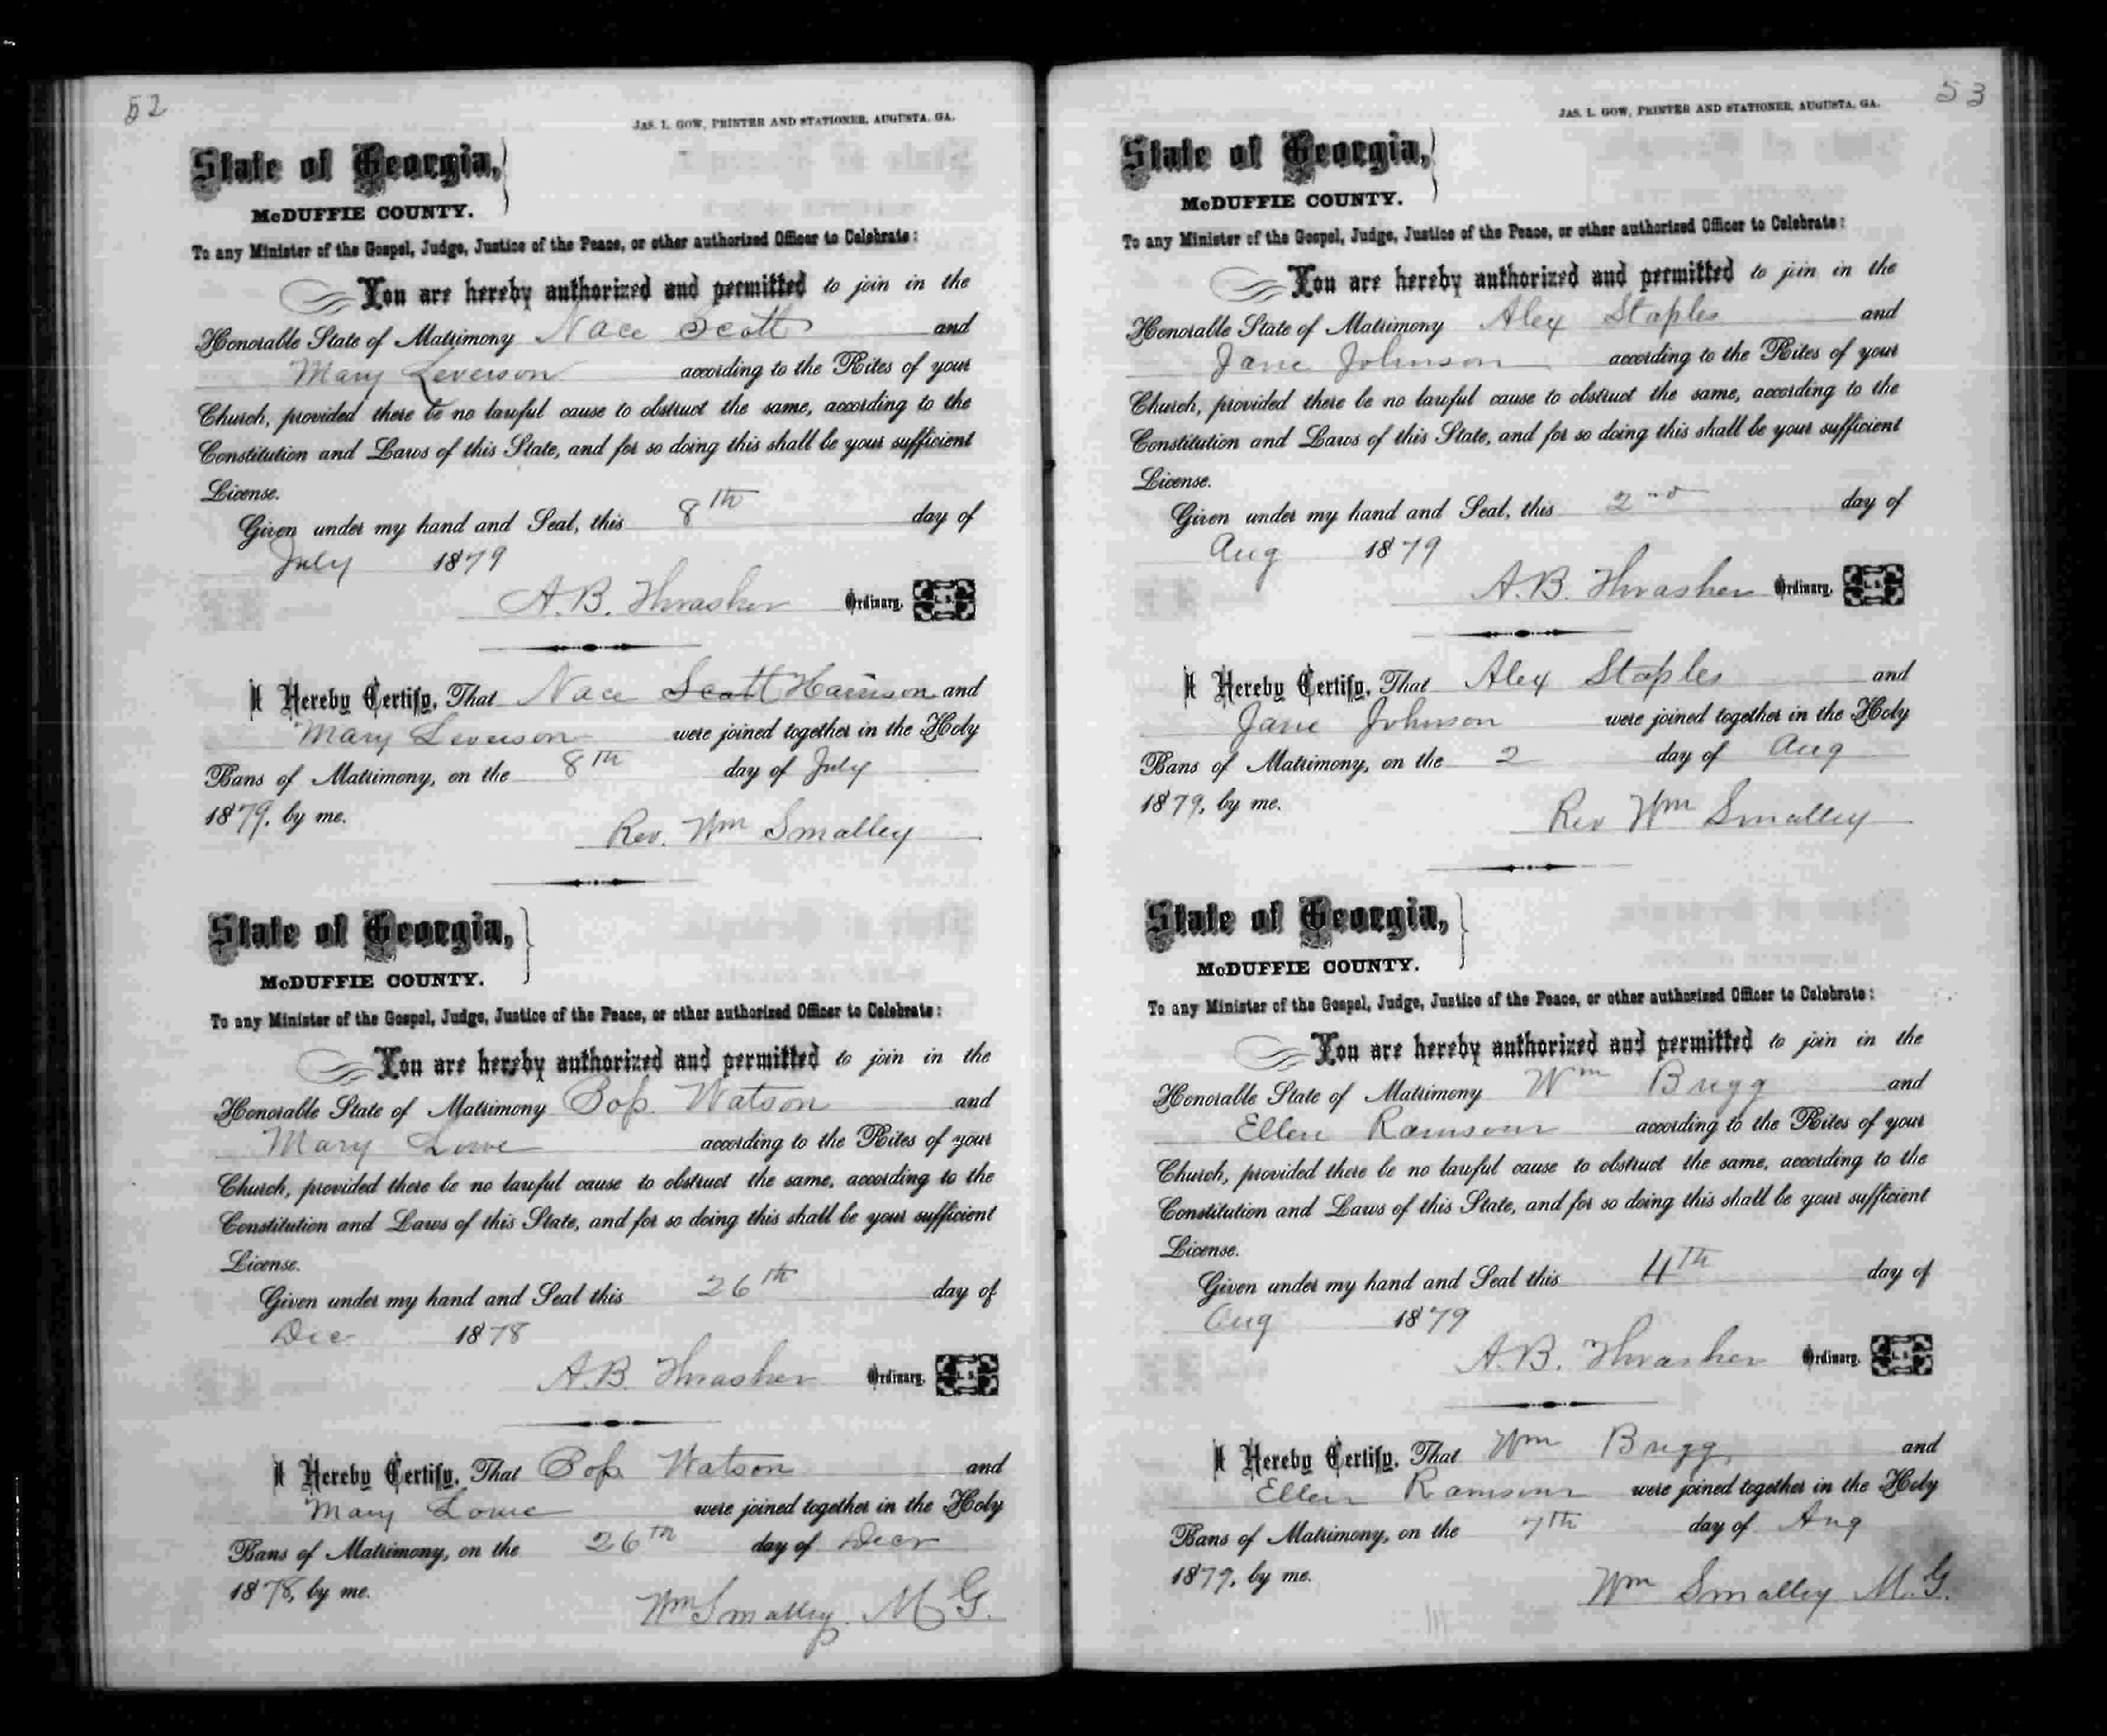 52
JAS. L. GOW, PRINTER AND STATIONER, AUGUSTA, GA.
State of Georgia,
McDUFFIE COUNTY.
To any Minister of the Gospel, Judge, Justice of the Peace, or other authorized Officer to Celebrate:
You are hereby authorized and permitted to join in the
Honorable State of Matrimony Nace Scott and
Mary Leverson according to the Rites of your
Church, provided there be no lawful cause to obstruct the same, according to the
Constitution and Laws of this State, and for so doing this shall be your sufficient
License.
Given under my hand and Seal, this 8th day of
July 1879
A.B. Thrasher Ordinary. L.S.
I Hereby Certify, That Nace Scott Harrison and
Mary Leverson were joined together in the Holy
Bans of Matrimony, on the 8th day of July
1879, by me.
Rev. Wm Smalley
State of Georgia,
McDUFFIE COUNTY.
To any Minister of the Gospel, Judge, Justice of the Peace, or other authorized Officer to Celebrate:
You are hereby authorized and permitted to join in the
Honorable State of Matrimony Watson and
Mary Lowe according to the Rites of your
Church, provided there be no lawful cause to obstruct the same, according to the
Constitution and Laws of this State, and for so doing this shall be your sufficient
License.
Given under my hand and Seal this 26th day of
Dec 1878
A.B. Thrasher Ordinary. L.S.
I Hereby Certify, That Watson and
Mary Lowe were joined together in the Holy
Bans of Matrimony, on the 26th day of Decr
1878, by me.
Wm Smalley. M G.
53
JAS. L. GOW, PRINTER AND STATIONER, AUGUSTA, GA.
State of Georgia,
McDUFFIE COUNTY.
To any Minister of the Gospel, Judge, Justice of the Peace, or other authorized Officer to Celebrate:
You are hereby authorized and permitted to join in the
Honorable State of Matrimony Alex Staples and
Jane Johnson according to the Rites of your
Church, provided there be no lawful cause to obstruct the same, according to the
Constitution and Laws of this State, and for so doing this shall be your sufficient
License.
Given under my hand and Seal, this 2nd day of
Aug 1879
A.B. Thrasher Ordinary. L.S.
I Hereby Certify, That Alex Staples and
Jane Johnson were joined together in the Holy
Bans of Matrimony, on the 2 day of Aug
1879, by me.
Rev Wm Smalley
State of Georgia,
McDUFFIE COUNTY.
To any Minister of the Gospel, Judge, Justice of the Peace, or other authorized Officer to Celebrate:
You are hereby authorized and permitted to join in the
Honorable State of Matrimony Wm Brigg and
Ellen Ramsour according to the Rites of your
Church, provided there be no lawful cause to obstruct the same, according to the
Constitution and Laws of this State, and for so doing this shall be your sufficient
License.
Given under my hand and Seal this 4th day of
Aug 1879
A.B. Thrasher Ordinary. L.S.
I Hereby Certify, That Wm Brigg and
Ellen Ramsour were joined together in the Holy
Bans of Matrimony, on the 7th day of Aug
1879, by me.
Wm Smalley M.G.